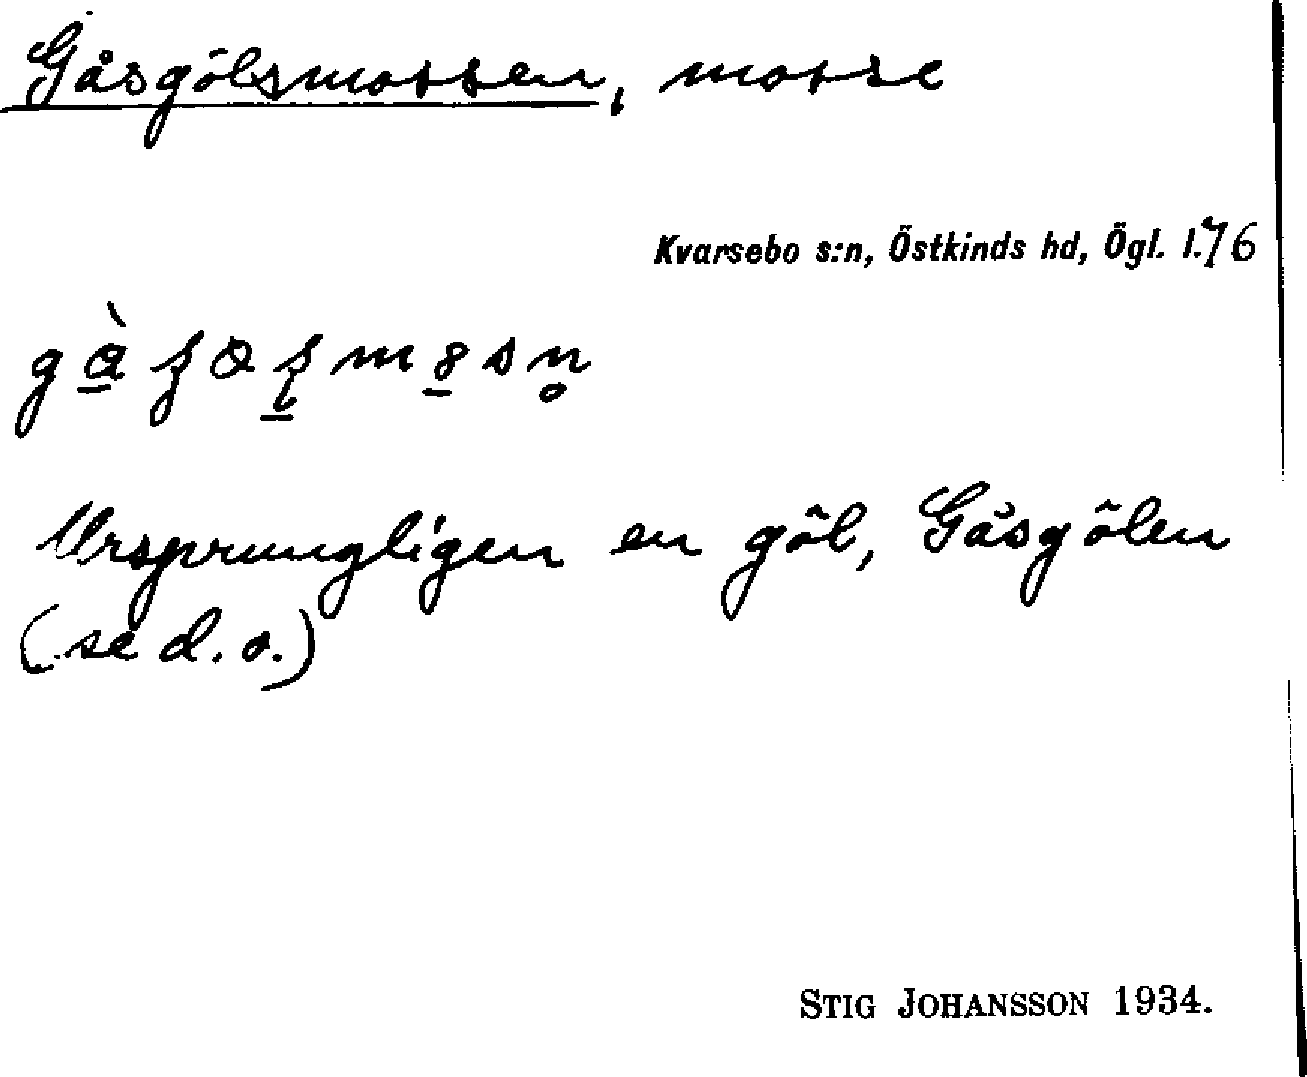 Gåsgölsmossen, mosse
Kvarsebo s:n, Östkinds hd, Ögl. l. 76
Ursprungligen en göl, Gåsgölen
(se d. o.)
STIG JOHANSSON 1934.